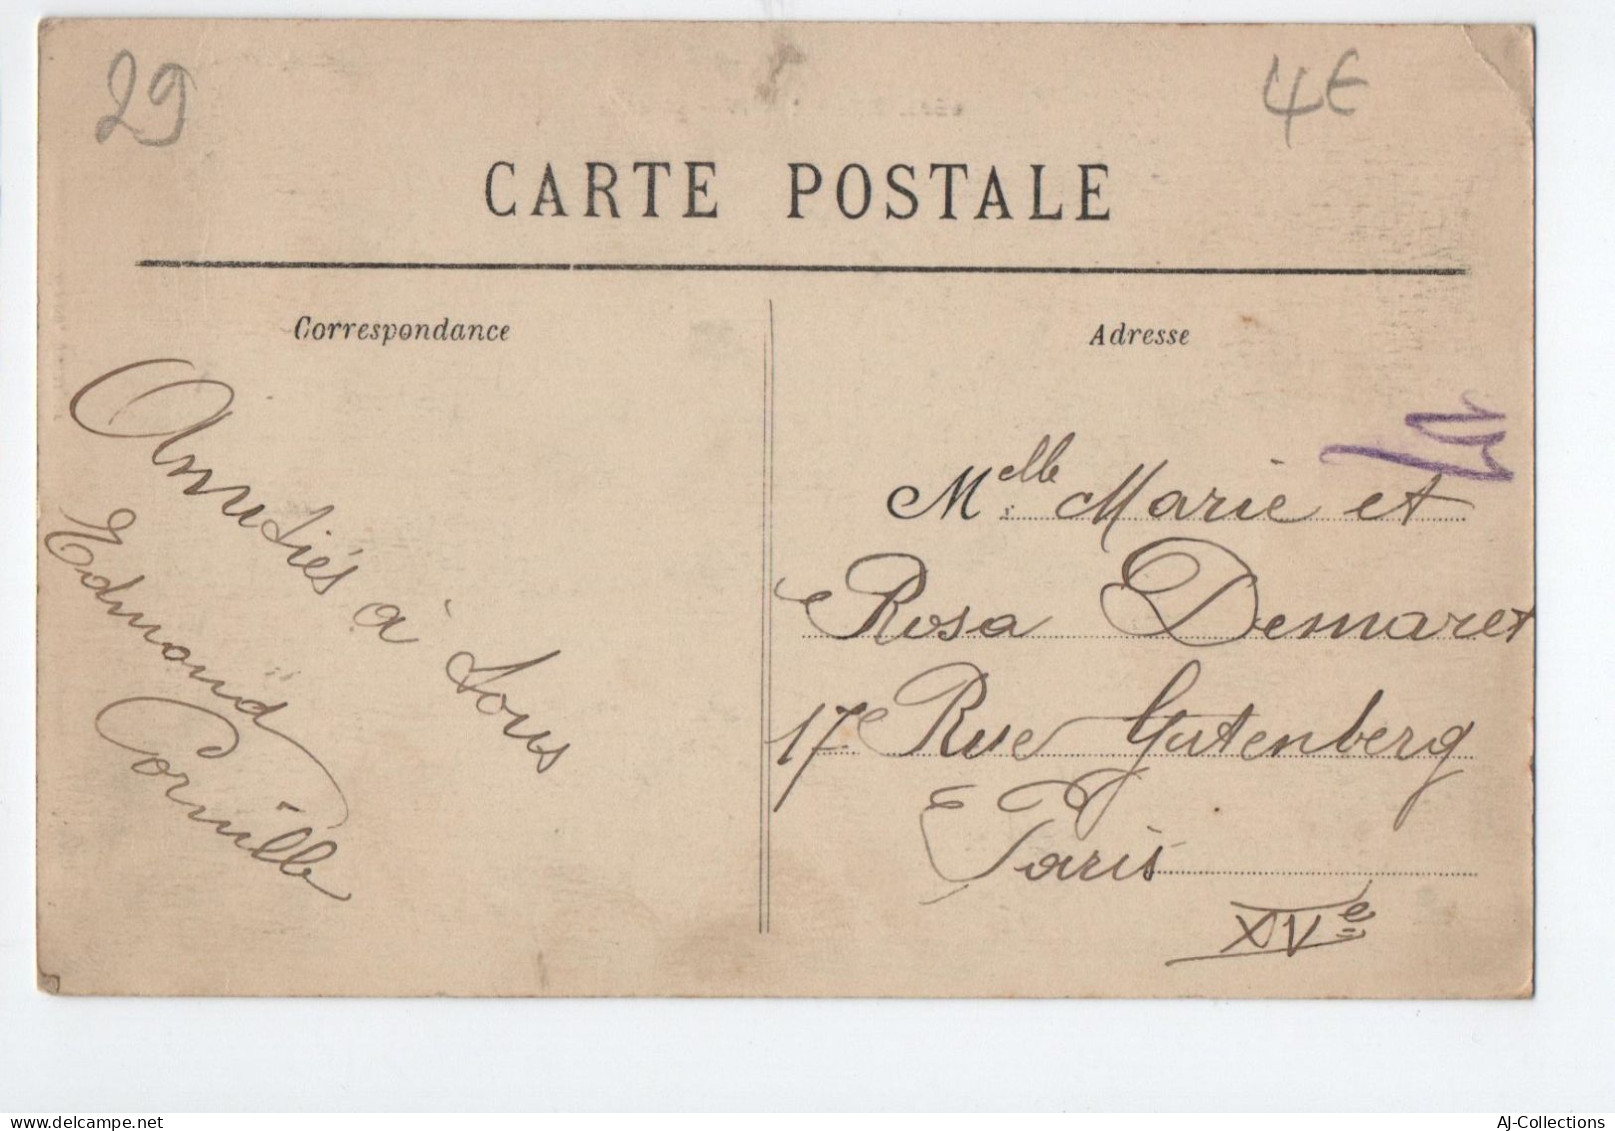 29
4€
CARTE POSTALE
Correspondance
Amitiés à tous
Edmond
Cornille
Adresse
Melle Marie et
Rosa Demaret
17 Rue Gutenberg
Paris
XVe
AJ-Collections